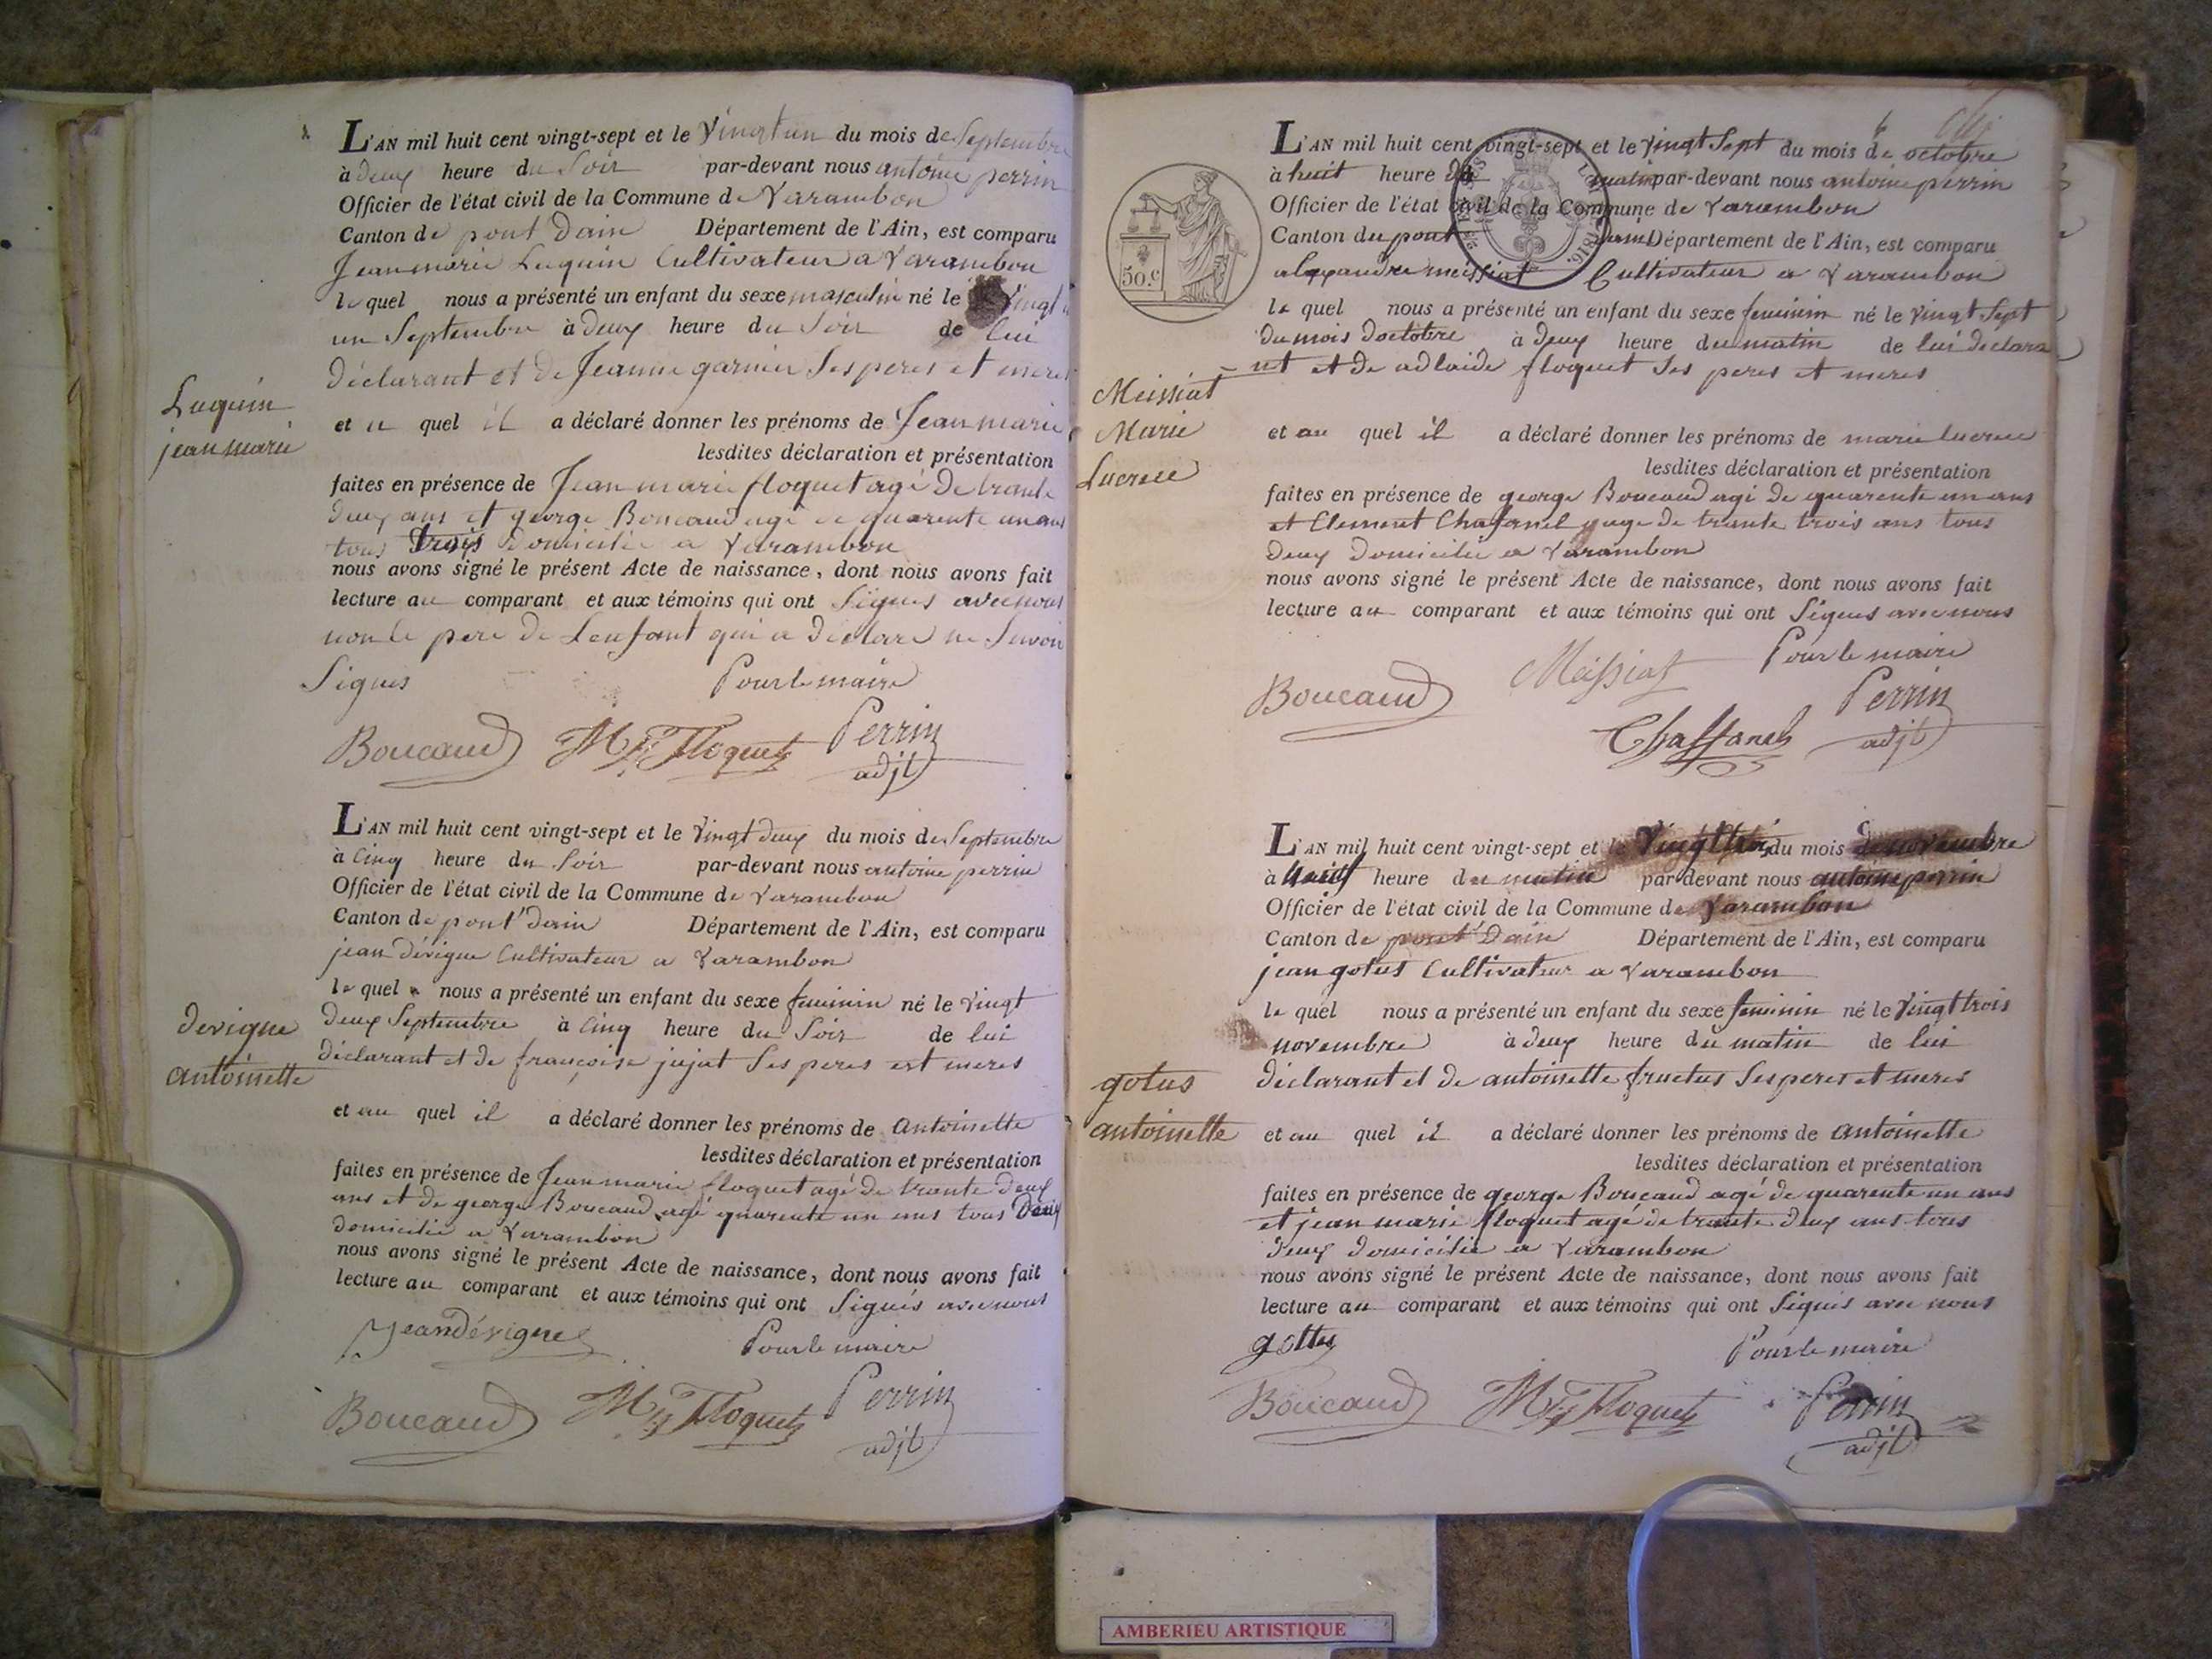 L'AN mil huit cent vingt-sept et le Vingt un du mois de Septembre
à deux heure du Soir par-devant nous antoine perrin
Officier de l'état civil de la Commune de Varambon
Canton de pont Dain Département de l'Ain, est comparu
Jean marie Luquin Cultivateur a Varambon
le quel nous a présenté un enfant du sexe masculin né le Vingt
un Septembre à deux heure du Soir de lui
Déclarant et de Jeanne garnier Ses peres et meres
Luquin
jean marie
et au quel il a déclaré donner les prénoms de Jean marie
lesdites déclaration et présentation
faites en présence de Jean marie floquet agé De trante
deux ans et george Boucaud agé de quarente un ans
tous trois Domicilie a Varambon
nous avons signé le présent Acte de naissance, dont nous avons fait
lecture au comparant et aux témoins qui ont Signes avec nous
non le pere de Lenfant qui a déclaré ne Savoir
Signes Pour le maire
Boucaud M Floquet Perrin
adjt
L'AN mil huit cent vingt-sept et le Vingt deux du mois de Septembre
à Cinq heure du Soir par-devant nous antoine perrin
Officier de l'état civil de la Commune de Varambon
Canton de pont Dain Département de l'Ain, est comparu
jean dévigne Cultivateur a Varambon
le quel nous a présenté un enfant du sexe feminin né le Vingt
deux Septembre à Cinq heure du Soir de lui
déclarant et de françoise jujat Ses peres est meres
devigne
antoinette
et au quel il a déclaré donner les prénoms de Antoinette
lesdites déclaration et présentation
faites en présence de Jean marie floquet agé de trante deux
ans et de george Boucaud agé quarente un ans tous Deux
domicilie a Varambon
nous avons signé le présent Acte de naissance, dont nous avons fait
lecture au comparant et aux témoins qui ont Signés avec nous
Jean dévigne Pour le maire
Boucaud M Floquet Perrin
adjt
L'AN mil huit cent vingt-sept et le Vingt Sept du mois de octobre
à huit heure du matin par-devant nous antoine perrin
Officier de l'état civil de la Commune de Varambon
Canton du pont Dain Département de l'Ain, est comparu
50.c
alexandre meissiat Cultivateur a Varambon
le quel nous a présenté un enfant du sexe feminin né le Vingt Sept
Du mois Doctobre à deux heure du matin de lui déclara
nt et de adlaide floquet Ses peres et meres
Meissiat
Marie
Lucrece
et au quel il a déclaré donner les prénoms de marie lucrece
lesdites déclaration et présentation
faites en présence de george Boucaud agé de quarente un ans
et Clement Chafanel gage de trante trois ans tous
deux Domicilie a Varambon
nous avons signé le présent Acte de naissance, dont nous avons fait
lecture au comparant et aux témoins qui ont Signes avec nous
Meissiat Pour le maire
Boucaud Chaffanel Perrin
adjt
L'AN mil huit cent vingt-sept et le Vingt trois du mois de novembre
à heure du matin par devant nous antoine perrin
Officier de l'état civil de la Commune de Varambon
Canton de pont Dain Département de l'Ain, est comparu
jean gotus Cultivateur a Varambon
le quel nous a présenté un enfant du sexe feminin né le Vingt trois
novembre à deux heure du matin de lui
déclarant et de antoinette fructus Ses peres et meres
gotus
antoinette
et au quel il a déclaré donner les prénoms de antoinette
lesdites déclaration et présentation
faites en présence de george Boucaud agé de quarente un ans
et jean marie floquet agé de trante deux ans tous
deux domicilie a Varambon
nous avons signé le présent Acte de naissance, dont nous avons fait
lecture au comparant et aux témoins qui ont Signés avec nous
gottus Pour le maire
Boucaud M Floquet Perrin
adjt
AMBERIEU ARTISTIQUE